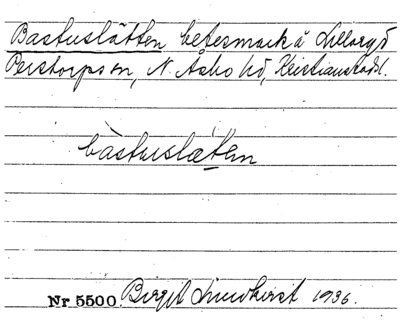 Bastuslätten betesmark å Lillaryd
Perstorps sn, N. Åsbo hd, Kristianstads l.
bàstuslæten
Nr 5500. Birgit Lindkvist 1936.